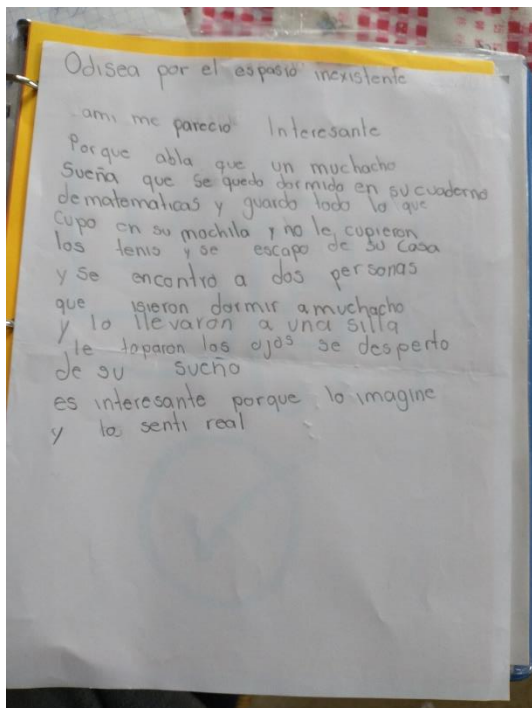 Odisea por el espasio inexistente
ami me parecio Interesante
Porque abla que un muchacho
Sueña que se quedo dormido en su cuaderno
de matematicas y guardo todo lo que
cupo en su mochila y no le cupieron
los tenis y se escapo de su casa
y se encontro a dos personas
que isieron dormir amuchacho
y lo llevaron a una silla
y le taparon los ojos se desperto
de su sueño
es interesante porque lo imagine
y lo senti real